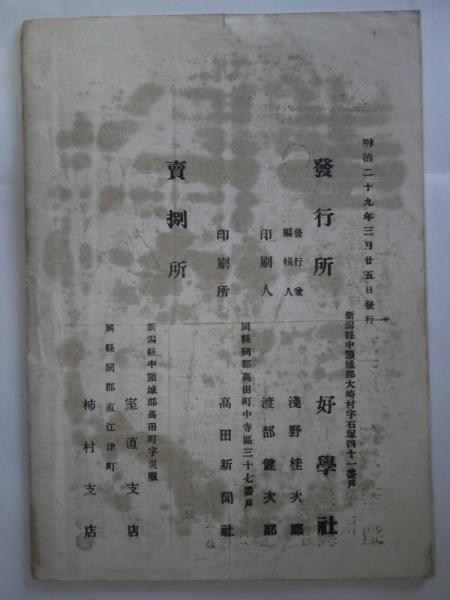 明治二十九年三月廿五日發行
新潟縣中頸城郡大崎村字石塚四十一番戸
發行所 好學社
發行兼編輯人 淺野桂次郎
印刷人 渡部健次郎
同縣同郡高田町中寺區三十七番戸
印刷所 高田新聞社
賣捌所
新潟縣中頸城郡高田町字吳服
室直支店
同縣同郡直江津町
柿村支店